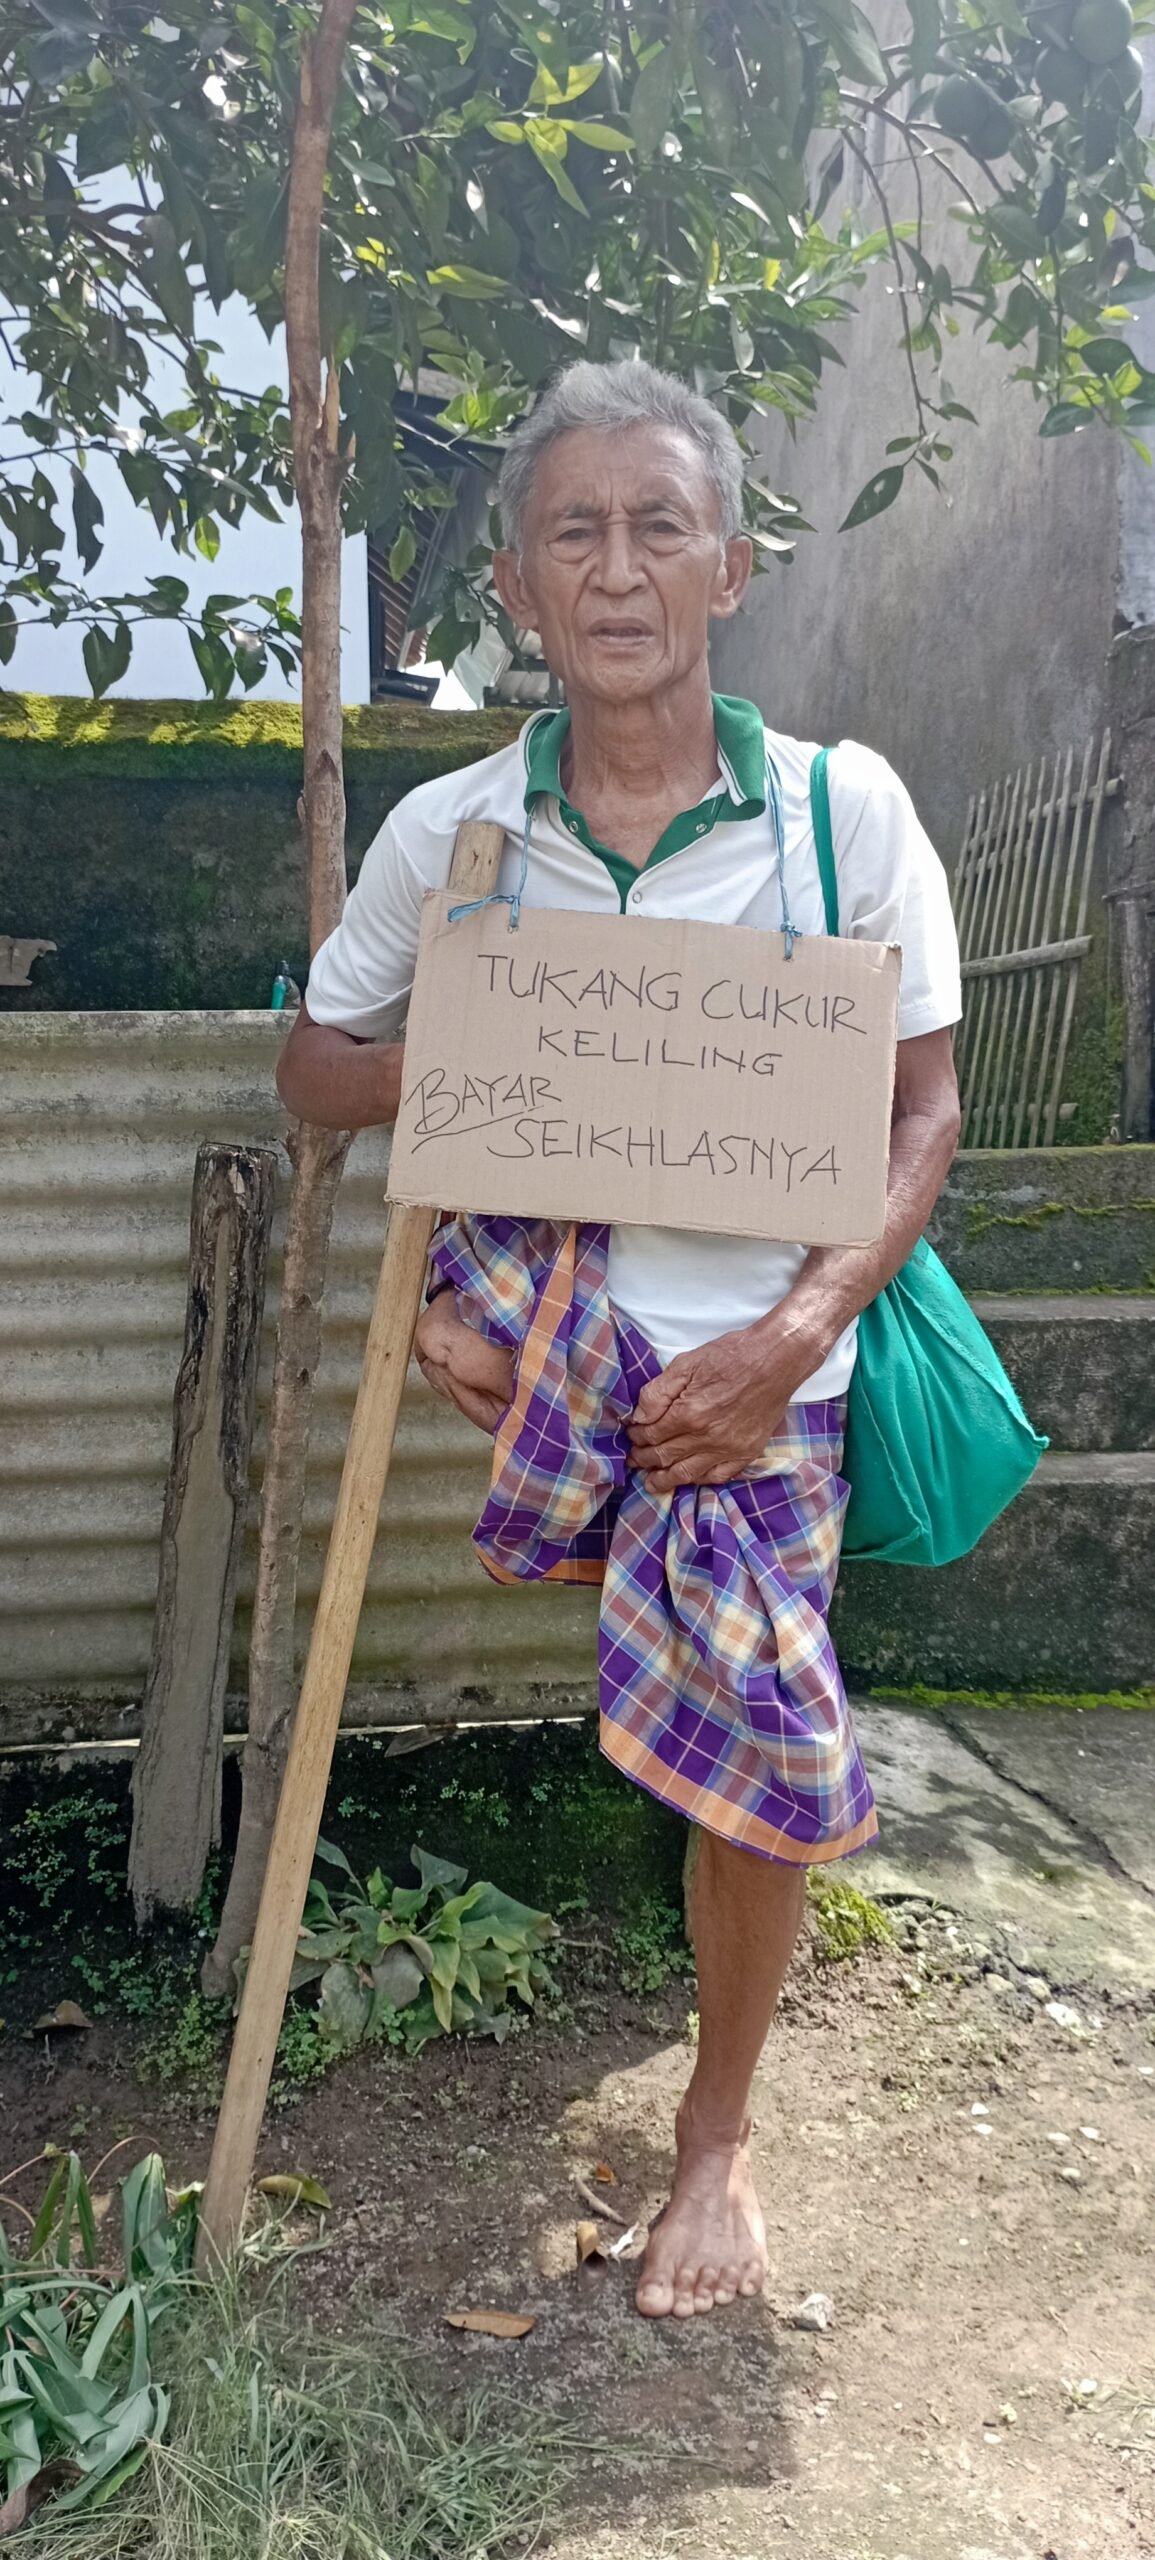 TUKANG CUKUR
KELILING
BAYAR
SEIKHLASNYA